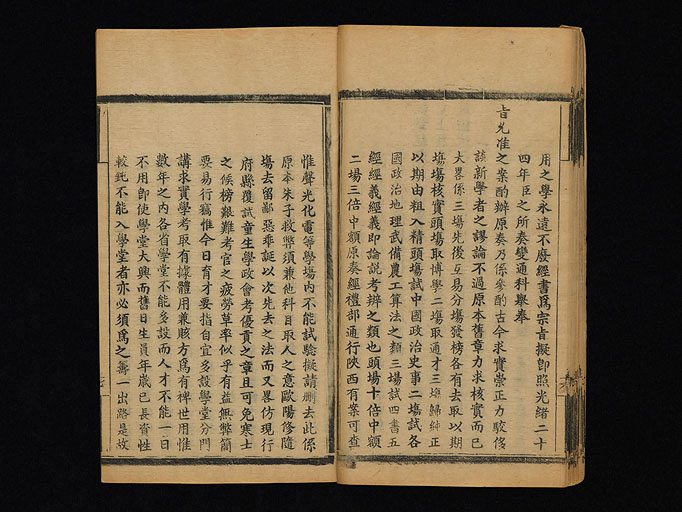 用之學永遠不廢經書爲宗旨擬卽照光緒二十
四年臣之所奏變通科舉奉
旨允准
之案酌辦原奏乃係參酌古今求實崇正力駁俢
談新學者之謬論不過原本舊章力求核實而已
大畧係三塲先後互易分塲發榜各有去取以期
塲塲核實頭塲取博學二塲取通才三塲歸純正
以期由粗入精頭塲試中國政治史事二塲試各
國政治地理武備農工算法之類三塲試四書五
經經義經義卽論說考辨之類也頭塲十倍中額
二塲三倍中額原奏經禮部通行陝西有案可查
惟聲光化電等學塲内不能試驗擬請刪去此係
原本朱子救弊須兼他科目取人之意歐陽修隨
塲去留鄙惡乖誕以次先去之法而又畧仿現行
府縣覆試童生學政會考優貢之章且可免寒士
之候榜艱難考官之疲勞草率似乎有益無弊簡
要易行竊惟今日育才要指自宜多設學堂分門
講求實學考取有據體用兼賅方爲有裨世用惟
數年之内各省學堂不能多設而人才不能一日
不用卽使學堂大興而舊日生員年歲已長資性
較鈍不能入學堂者亦必須爲之籌一出路是故